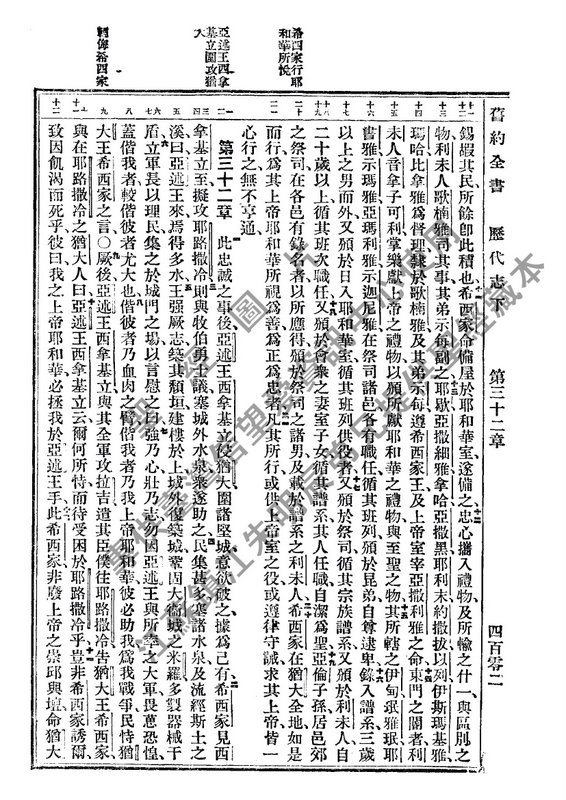 舊約全書 歷代志下 第三十二章 四百零二
希西家行耶和華所悅
亞述王西拿基立圍攻猶大
輕侮希西家
錫嘏其民所餘卽此積也希西家命備屋於耶和華室遂備之忠心攜入禮物及所輸之什一與區別之
物利未人歌楠雅司其事其弟示每副之耶歇亞撒細雅拿哈亞撒黑耶利末約撒拔以列伊斯瑪基雅
瑪哈比拿雅爲督理隸於歌楠雅及其弟示每遵希西家王及上帝室宰亞撒利雅之命東門之閽者利
未人音拿子可利掌樂獻上帝之禮物以頒所獻耶和華之禮物與至聖之物其所轄之伊甸珉雅珉耶
書雅示瑪雅亞瑪利雅示迦尼雅在祭司諸邑各有職任循其班列頒於昆弟自尊逮卑錄入譜系三歲
以上之男而外又頒於日入耶和華室循其班列供役者又頒於祭司循其宗族譜系又頒於利未人自
二十歲以上循其班次職任又頒於會衆之妻室子女循其譜系其人任職自潔爲聖亞倫子孫居邑郊
之祭司在各邑有錄名者以所應得頒於祭司之諸男及載於譜系之利未人希西家在猶大全地如是
而行爲其上帝耶和華所視爲善爲正爲忠者凡其所行或供上帝室之役或遵律守誡求其上帝皆一
心行之無不亨通
第三十二章 此忠誠之事後亞述王西拿基立侵猶大圍諸堅城意欲破之據爲己有希西家見西
拿基立至擬攻耶路撒冷則與牧伯勇士議塞城外水泉衆遂助之民集甚多塞諸水泉及流經斯土之
溪曰亞述王來焉得多水王强厥志築其頹垣建樓於上城外復築城鞏固大衞城之米羅多製器械干
盾立軍長以理民集之於城門之場以言慰之曰强乃心壯乃志勿因亞述王與所率之大軍畏葸恐惶
蓋偕我者較偕彼者尤大也偕彼者乃血肉之臂偕我者乃我上帝耶和華彼必助我爲我戰爭民恃猶
大王希西家之言○厥後亞述王西拿基立與其全軍攻拉吉遣其臣僕往耶路撒冷告猶大王希西家
與在耶路撒冷之猶大人曰亞述王西拿基立云爾何所恃而待受困於耶路撒冷乎豈非希西家誘爾
致因飢渴而死乎彼曰我之上帝耶和華必拯我於亞述王手此希西家非廢上帝之崇邱與壇命猶大